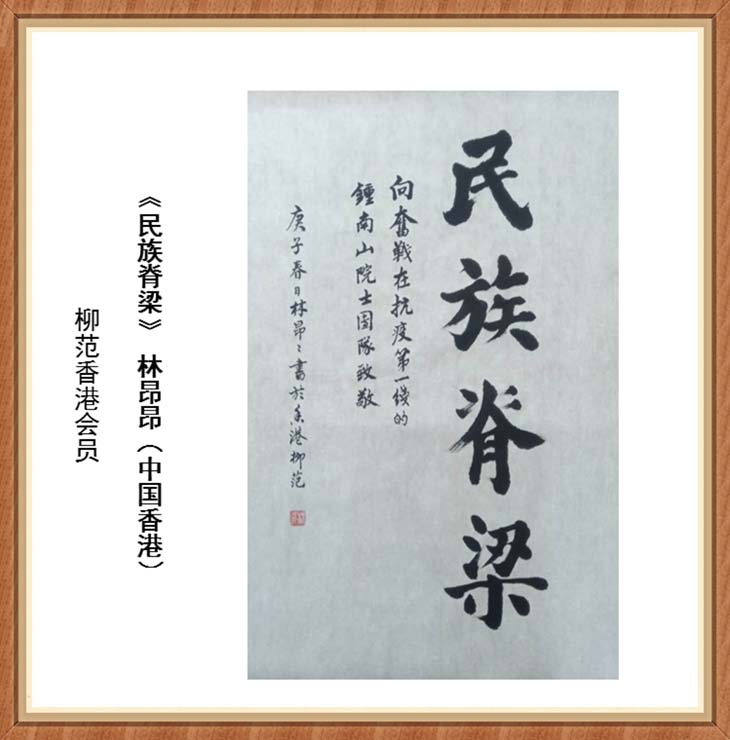 民族脊梁
向奮戰在抗疫第一綫的
鍾南山院士团隊致敬
庚子春日林昂〻書於香港柳范
《民族脊梁》 林昂昂（中国香港）
柳范香港会员